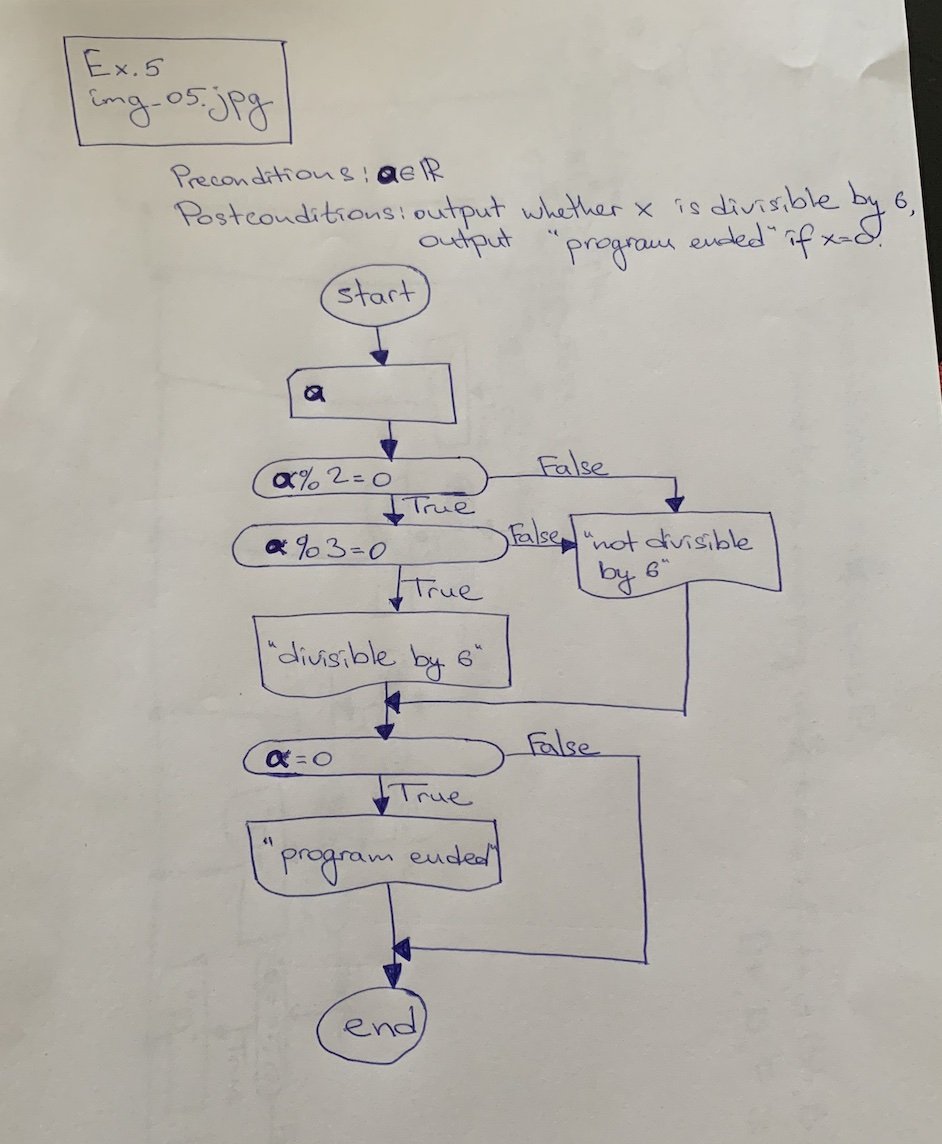 Ex.5
img_05.jpg
Preconditions: a∈ℝ
Postconditions: output whether x is divisible by 6,
output "program ended" if x=0.
start
a
a%2=0
False
True
a%3=0
False
"not divisible
by 6"
True
"divisible by 6"
a=0
False
True
"program ended"
end